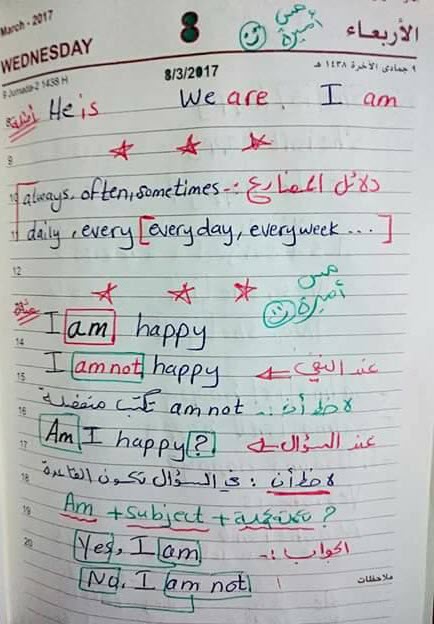 March - 2017
WEDNESDAY
8
الأربعاء
مس أميرة
9 Jumada-2 1438 H
8/3/2017
٩ جمادى الآخرة ١٤٣٨ هـ
أمثلة He is We are I am
9
10 always, often, sometimes -: دلائل المضارع
11 daily, every [everyday, everyweek ...]
12
مس أميرة
مثال I am happy
14
I am not happy عند النفي
15
16 لاحظ أن :- am not تكتب منفصلة
17 Am I happy? عند السؤال
18 لاحظ أن : في السؤال تكون القاعدة
19 Am + subject + تكملة ?
20 Yes, I am الجواب :-
No, I am not
ملاحظات